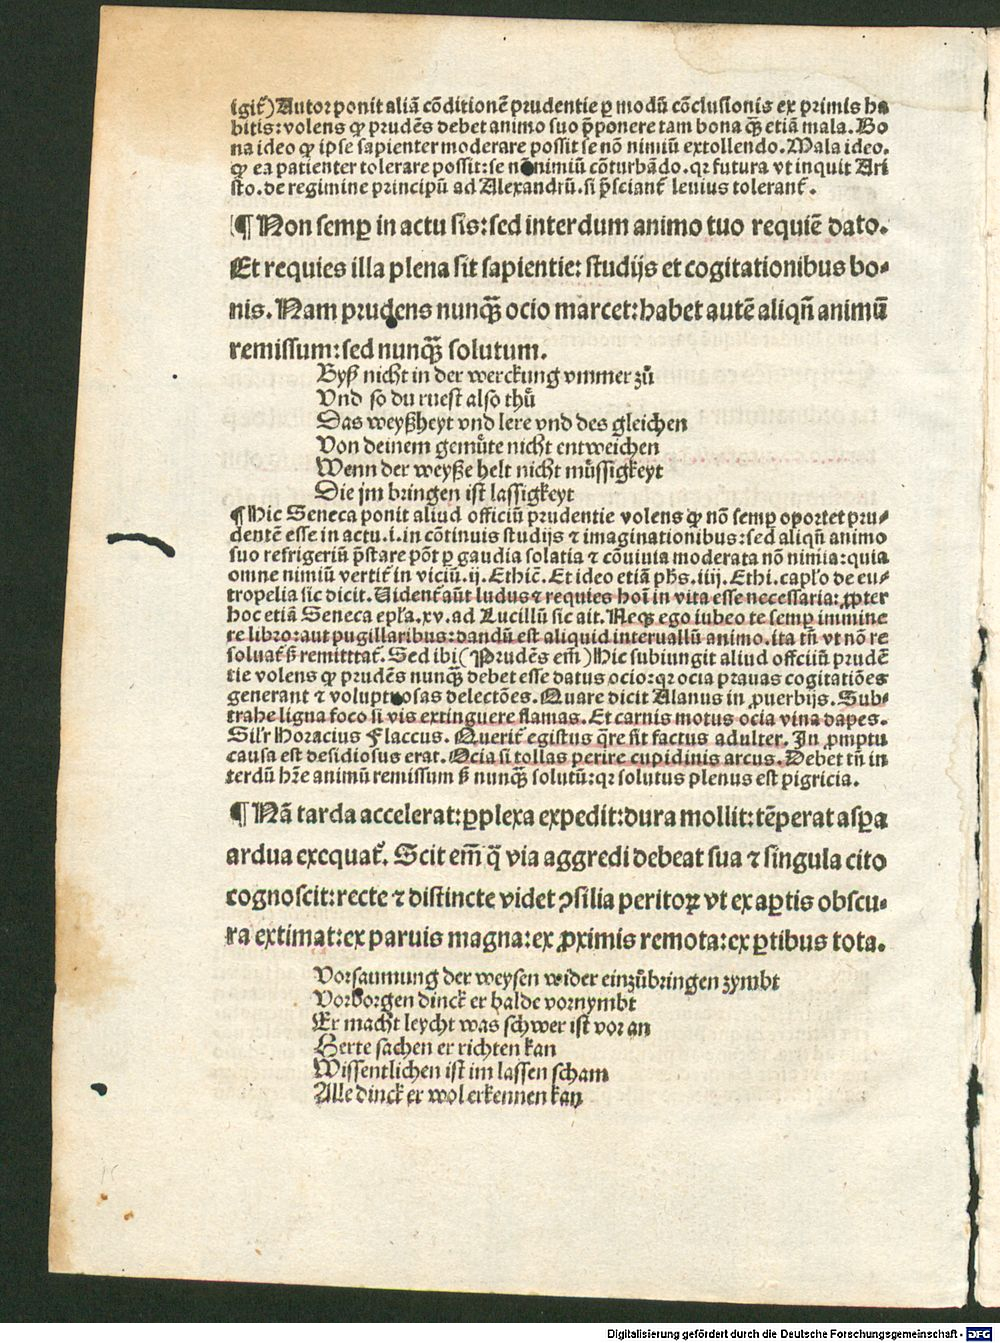 igit᷑) Autor ponit aliā cōditionē prudentie ꝑ modū cōclusionis ex primis ha
bitis: volens ꝙ prudēs debet animo suo p̄ponere tam bona qꝫ̄ etiā mala. Bo
na ideo ꝙ ipse sapienter moderare possit se nō nimiū extollendo. Mala ideo.
ꝙ ea patienter tolerare possit: se nō nimiū cōturbādo. qꝛ futura vt inquit Ari
sto. de regimine principū ad Alexandrū. si p̄sciant᷑ levius tolerant᷑.
¶ Non semꝑ in actu sis: sed interdum animo tuo requiē dato.
Et requies illa plena sit sapientie: studijs et cogitationibus bo-
nis. Nam prudens nunqꝫ̄ ocio marcet: habet autē aliqn̄ animū
remissum: sed nunqꝫ̄ solutum.
Byß nicht in der werckung vmmer zů
Vnd so du ruest also thů
Das weyßheyt vnd lere vnd des gleichen
Von deinem gemüte nicht entweichen
Wenn der weyße helt nicht müssigkeyt
Die jm bringen ist lassigkeyt
¶ Hic Seneca ponit aliud officiū prudentie volens ꝙ nō semꝑ oportet pru-
dentē esse in actu. i. in cōtinuis studijs ⁊ imaginationibus: sed aliqn̄ animo
suo refrigeriū p̄stare pōt ꝑ gaudia solatia ⁊ cōuiuia moderata nō nimia: quia
omne nimiū vertit᷑ in viciū. ij. Ethic̄. Et ideo etiā ph̄s. iiij. Ethi. capl̓o de eu-
tropelia sic dicit. Uident᷑ aūt ludus ⁊ requies hoī in vita esse necessaria: ꝓpter
hoc etiā Seneca epl̓a. xv. ad Lucillū sic ait. Neqꝫ ego iubeo te semꝑ immine
re libro: aut pugillaribus: dandū est aliquid interuallū animo. ita tn̄ vt nō re
soluat᷑ ꝸ remitttat᷑. Sed ibi (Prudēs em̄) Hic subiungit aliud offciiū prudē
tie volens ꝙ prudēs nunqꝫ̄ debet esse datus ocio: qꝛ ocia prauas cogitatiōes
generant ⁊ voluptuosas delectōes. Quare dicit Alanus in ꝓuerbijs. Sub-
trahe ligna foco si vis extinguere flamas. Et carnis motus ocia vina dapes.
Sil̓r Horacius Flaccus. Querit᷑ egistus q̄re sit factus adulter. In ꝓmptu
causa est desidiosus erat. Ocia si tollas perire cupidinis arcus. Debet tn̄ in
terdū hr̄e animū remissum ꝸ nunqꝫ̄ solutū: qꝛ solutus plenus est pigricia.
¶ Nā tarda accelerat: ꝑplexa expedit: dura mollit: tēperat asꝑa
ardua exequat᷑. Scit em̄ q̄ via aggredi debeat sua ⁊ singula cito
cognoscit: recte ⁊ distincte videt ꝯsilia peritoꝝ vt ex aꝑtis obscu-
ra extimat: ex paruis magna: ex ꝓximis remota: ex ꝑtibus tota.
Vorsaumung der weysen wider einzůbringen zymbt
Vorborgen dinck er balde vornymbt
Er macht leycht was schwer ist vor an
Herte sachen er richten kan
Wissentlichen ist im lassen scham
Alle dinck er wol erkennen kan
Digitalisierung gefördert durch die Deutsche Forschungsgemeinschaft - DFG